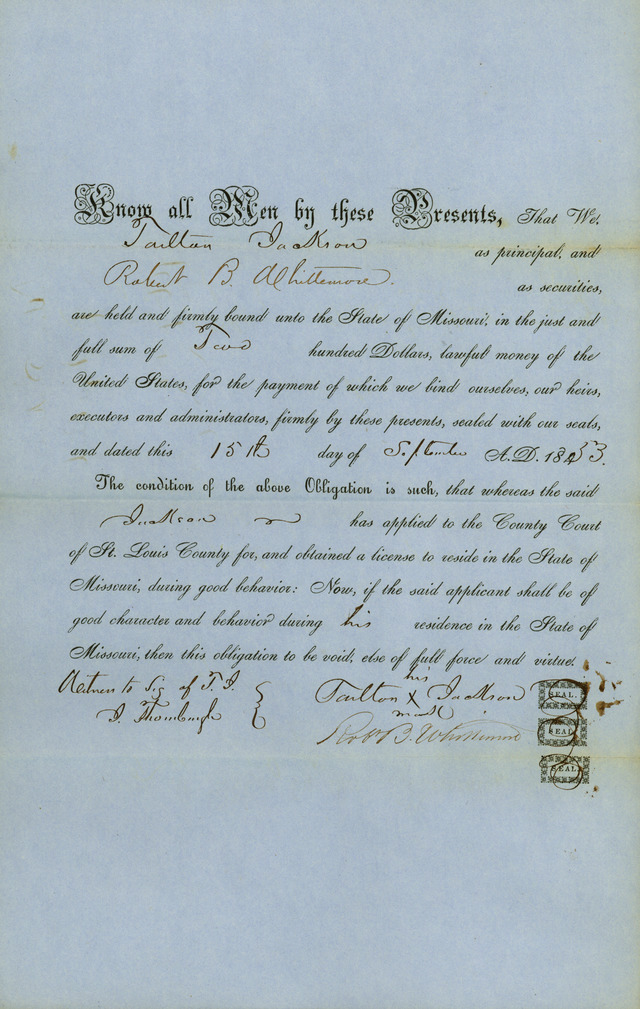 Know all Men by these Presents, That We,
Tarlton Jackson as principal, and
Robert B. Whittemore. as securities,
are held and firmly bound unto the State of Missouri, in the just and
full sum of Two hundred Dollars, lawful money of the
United States, for the payment of which we bind ourselves, our heirs,
executors and administrators, firmly by these presents, sealed with our seals,
and dated this 15th day of September A.D. 1853.
The condition of the above Obligation is such, that whereas the said
Jackson has applied to the County Court
of St. Louis County for, and obtained a license to reside in the State of
Missouri, during good behavior: Now, if the said applicant shall be of
good character and behavior during his residence in the State of
Missouri, then this obligation to be void, else of full force and virtue.
Witness to Sig of T. J.
J. Thornburgh
his
Tarlton X Jackson SEAL
mark
Robt B. Whittemore SEAL
SEAL